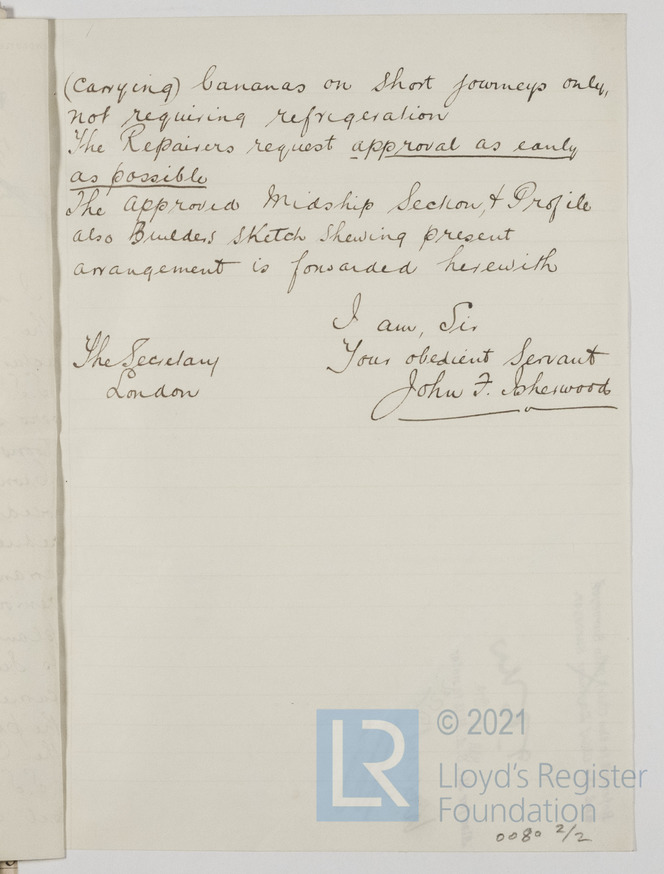 (carrying) bananas on short journeys only,
not requiring refrigeration
The Repairers request approval as early
as possible
The approved Midship Section, & Profile
also Builders sketch shewing present
arrangement is forwarded herewith
I am, Sir
The Secretary
Your obedient Servant
London
John F. Isherwood
© 2021
LR
Lloyd's Register
Foundation
0080 2/2